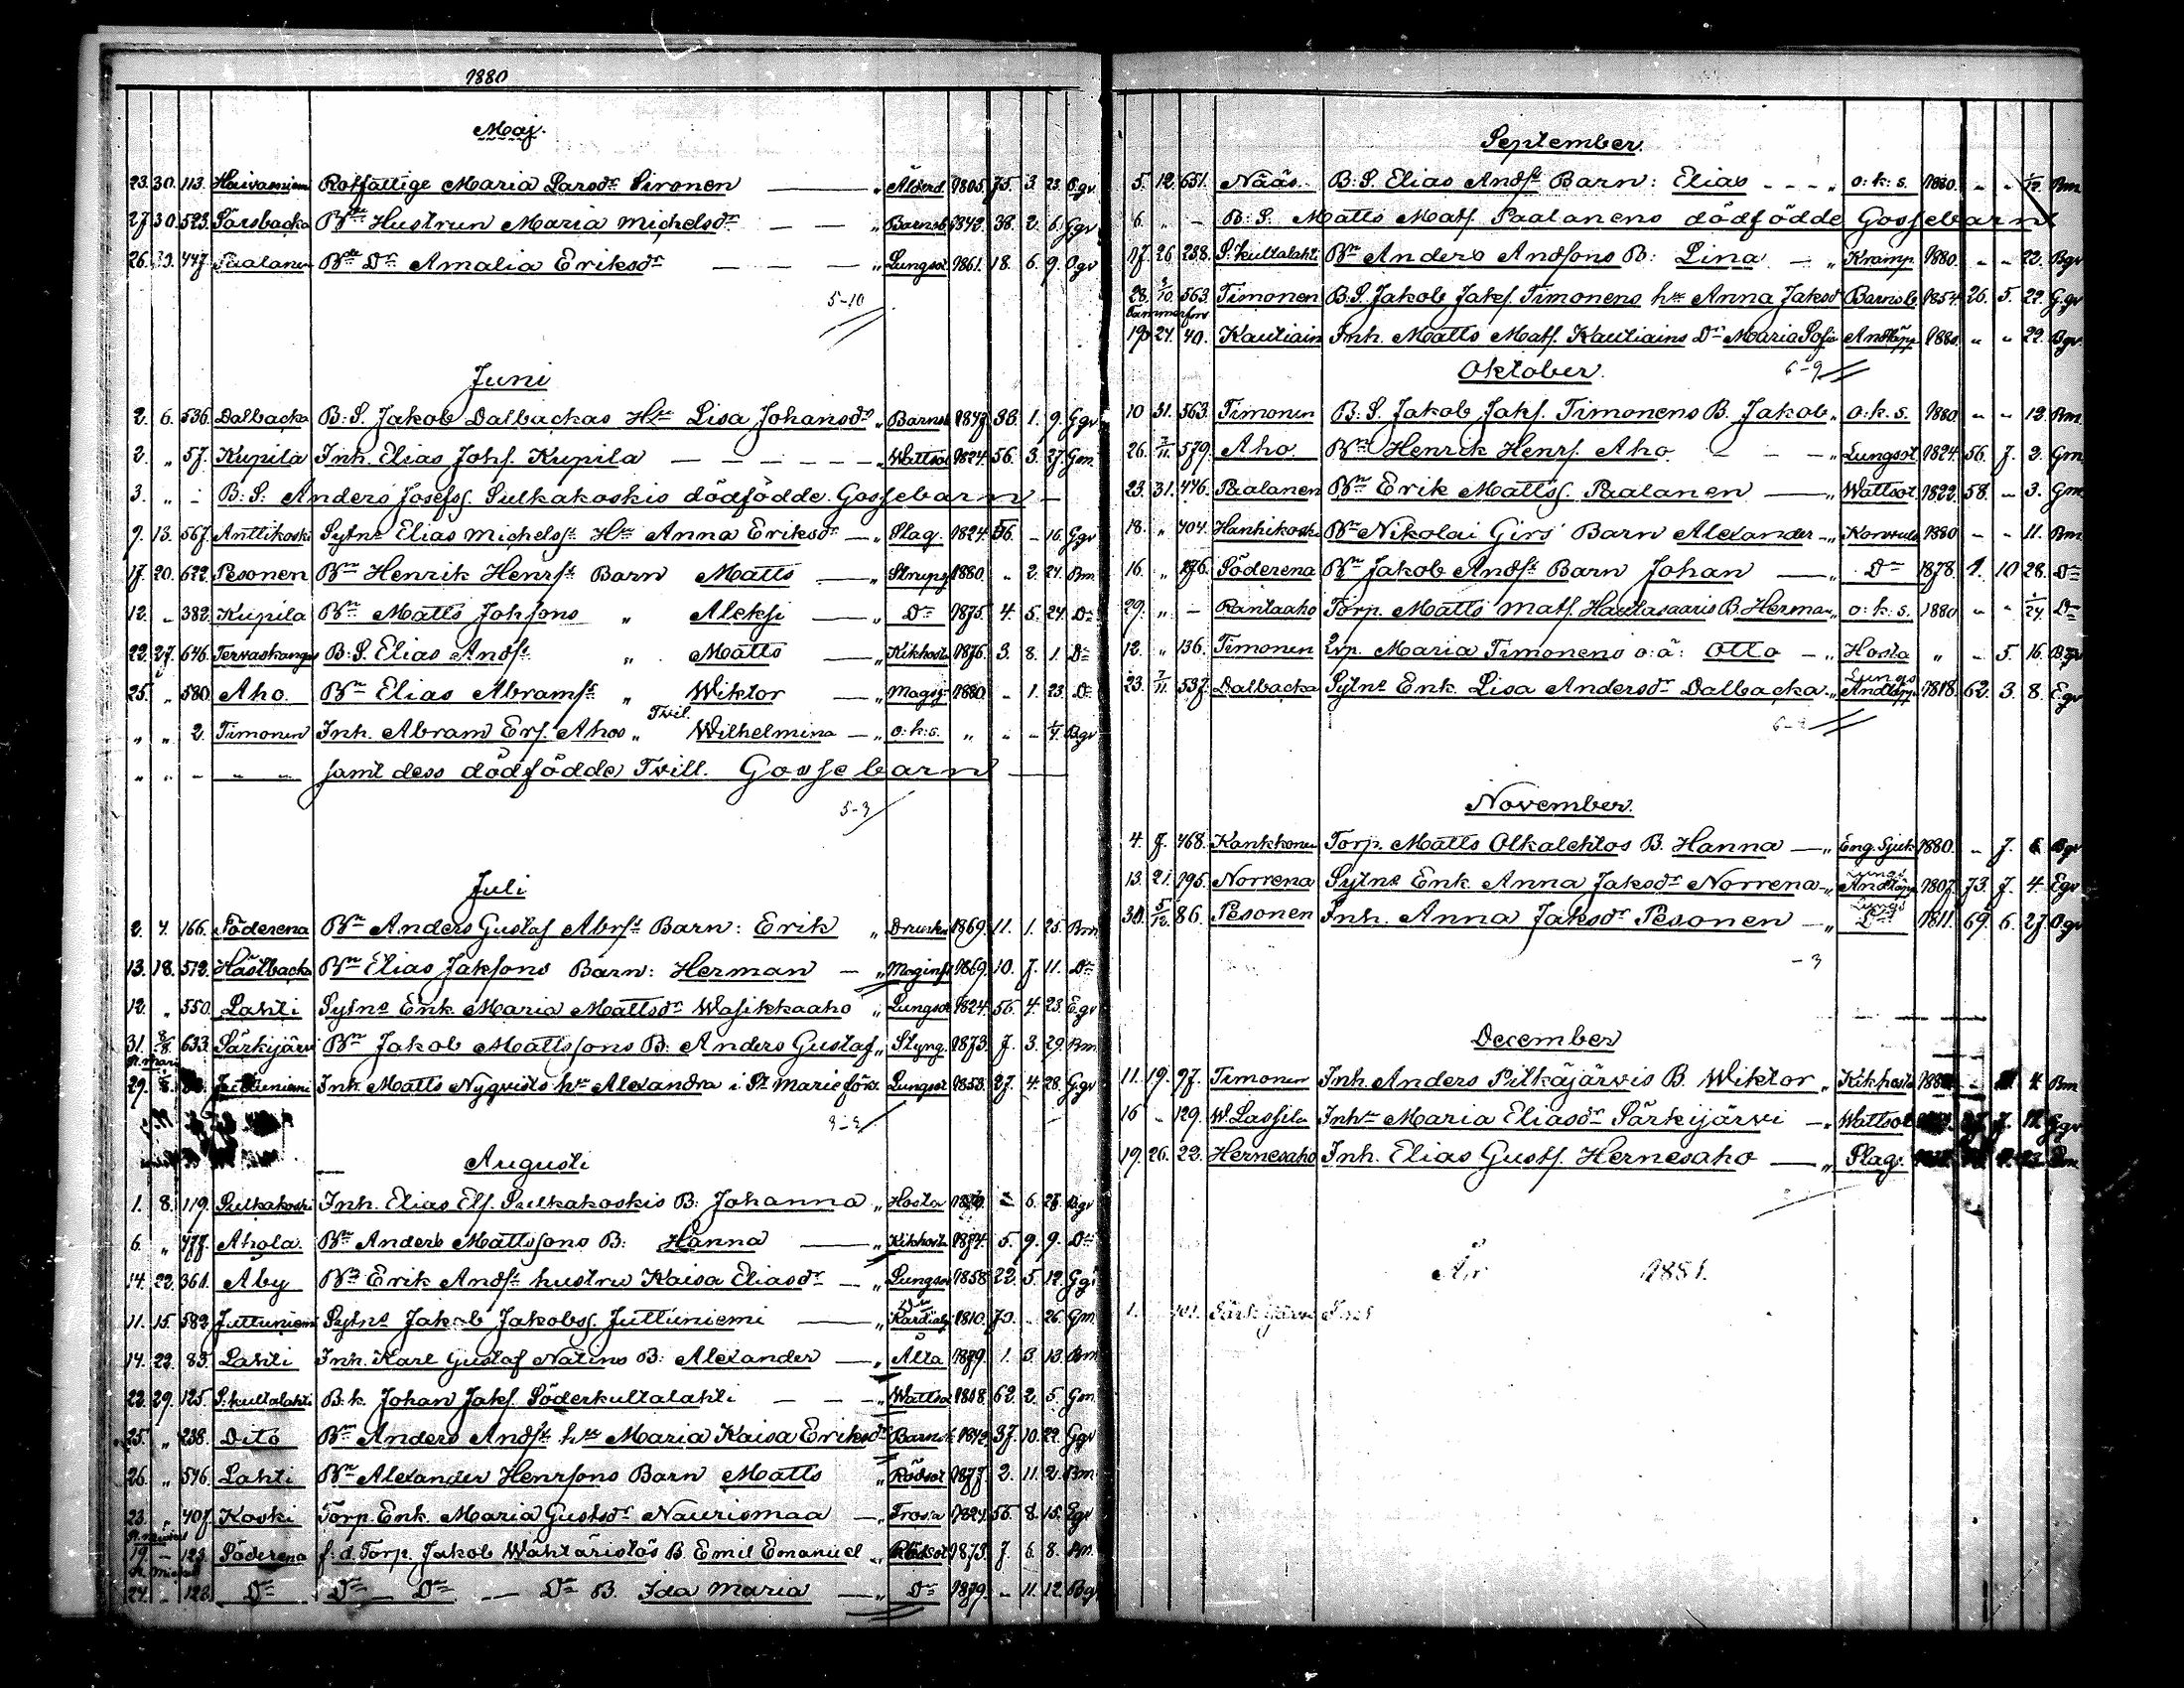 1880
Maj.
23. 30. 113. Rotfattige Maria Larsdr Sironen — " Ålderd. 1805. 75. 3. 23.
27 30. 523. Hustrun Maria Michelsdr — — " Barnsb. 1842. 38. 2. 6. Ggv
26. 447. Paalanen Bn Dr Amalia Eriksdr — — — " Lungsot 1861. 18. 6. 9. Ogv
5-10
Juni
2. 6. 536. Dalbacka B: S. Jakob Dalbackas Hu Lisa Johansdr " Barnsb 1847. 38. 1. 9. Ggv
2. " 57. Kupila Inh. Elias Johs. Kupila — — — — — " Wattsot 1824. 56. 3. 27. Gm
3. " - B: S: Anders Josefss. Pulkakoskis dödfödde Gossebarn —
7. 13. 567. Anttikoski Sytns Elias Michelss. Hu Anna Eriksdr — " Slag. 1824. 56. - 16. Ggv
17. 20. 622. Pesonen Bn Henrik Henrsns Barn Matts — " Strupsj 1880. " 2. 24. Bm
12. " 382. Kupila Bn Matts Johsons " Aleksi — " Do 1875. 4. 5. 24. Do
22. 27. 646. Tervaskangas B: S. Elias Ands. " Matts — " Kikhosta 1876. 3. 8. 1. Do
25. " 580. Aho. Bn Elias Abrams. " Wiktor — " Magsj. 1880. " 1. 23. Do
" " 2. Timonen Inh. Abram Ers. Ahos " Tvil. Wilhelmina — " o: k: s. " " - 1/4 Bgv
" " - " " samt dess dödfödde Tvill. Gossebarn —
5-3
Juli
2. 4. 166. Söderena Bn Anders Gustaf Abrs. Barn: Erik " Drunkn 1869. 11. 1. 25. Bm
13. 18. 512. Hästbacka Bn Elias Jaksons Barn: Herman — " 1869. 10. 7. 11. Do
12. " 550. Lahti Sytns Enk. Maria Mattsdr Wasikkaaho " Lungsot 1824. 56. 4. 23. Egv
31. 8/8. 633. Särkijärvi Bn Jakob Mattssons B: Anders Gustaf " 1873. 7. 3. 29. Bm
29. Juttuniemi Inh. Matts Nyqvists hu Alexandra i St Marie förs. Lungsot 1853. 27. 4. 28. Ggv
Augusti
1. 8. 119. Pulkakoski Inh. Elias Els. Pulkakoskis B: Johanna " Hosta - 6. 28. Bgv
6. " 477. Ahola. Bn Anders Mattssons B: Hanna — " Kikhosta 1874. 5. 9. 9. Do
14. 22. 361. Aby Bn Erik Ands. hustru Kaisa Eliasdr — " Lungsot 1858 22. 5. 12. Ggv
11. 15. 582. Juttuniemi Sytns Jakob Jakobss. Juttuniemi — " 1810. 70. - 26. Gm
14. 22. 83. Lahti Inh. Karl Gustaf Natins B: Alexander — " Älta 1879. 1. 3. 13. Bm
22. 29. 125. S: kultalahti B: k. Johan Jaks. Söderkultalahti — — " Wattsot 1818. 62. 2. 5. Gm
25. " 238. Dito Bn Anders Ands. hu Maria Kaisa Eriksdr Barnsb 1842. 37. 10. 22. Ggv
26. " 546. Lahti Bn Alexander Henrsons Barn Matts " Rödsot 1877. 2. 11. 2. Bm
23. " 407. Koski Torp. Enk. Maria Gustsdr Naurismaa — " Frossa 1824. 56. 8. 15. Egv
19. - 123. Söderena f: d. Torp. Jakob Wähtäristös B. Emil Emanuel " Rödsot 1873. 7. 6. 8. Bm
24. - 123. Do Do — Do — Do B. Ida Maria — " Do 1879. - 11. 12. Bgv
September.
5. 12. 651. Nääs. B: S. Elias Ands. Barn: Elias - - - " o: k: s. 1880. " " 1/12. Bm
6. " - B: S. Matts Mats. Paalanens dödfödde Gossebarn
17. 26. 238. S. kultalahti Bn Anders Andsons B: Lina — " Kramp. 1880. " " 22. Bgv
28. 3/10. 563. Timonen B: S. Jakob Jaks. Timonens hu Anna Jaksdr Barnsb. 1854. 26. 5. 22. G. gv
Tammerfors
19. 24. 40. Kautiain Inh. Matts Mats. Kautiains Dr Maria Sofia Andtäpp 1880. " " 22. Bgv
Oktober. 6-9
10 31. 563. Timonen B: S. Jakob Jaks. Timonens B. Jakob " o: k. s. 1880. " " 12. Bm
26. 7/11. 579. Aho. Bn Henrik Henrs. Aho - - - " Lungsot 1824. 56. 7. 2. Gm
23. 31. 446. Paalanen Bn Erik Mattss. Paalanen — " Wattsot. 1822. 58. " 3. Gm
18. " 404. Hanhikoski Bn Nikolai Girs' Barn Alexander — " 1880 - - 11. Bm
16. " 276. Söderena Bn Jakob Ands. Barn Johan — " Do 1878. 1. 10 28. Do
29. " - Rantaaho Torp. Matts Mats. Hautasaaris B. Herman " o: k: s. 1880 " " 1/24 Do
12. " 136. Timonen Maria Timonens o: ä: Otto — " Hosta " - 5. 16. Bgv
23. 7/11. 537. Dalbacka Sytns Enk. Lisa Andersdr Dalbacka " Lungs Andtäpp. 1818. 62. 3. 8. Egv
November.
4. 7. 468. Kankkonen Torp. Matts Olkalehtos B. Hanna — " Eng. Sjuk 1880. - 7. 6. Bgv
13. 21. 195. Norrena Sytns Enk. Anna Jaksdr Norrena " Lungs Andtäpp. 1807. 73. 7. 4. Egv
30. 5/12. 86. Pesonen Inh. Anna Jaksdr Pesonen — " Lungs Do 1811. 69. 6. 27. Ogv
-3
December
11. 19. 97. Timonen Inh. Anders Pitkäjärvis B. Wiktor " Kikhosta 4. Bm
16 - 129. W. Lassila Inhn Maria Eliasdr Särkijärvi — " Wattsot Ggv
19. 26. 22. Hernesaho Inh. Elias Gusts. Hernesaho — " Slag.
År 1881.
1. 101. Särkijärvi Inh